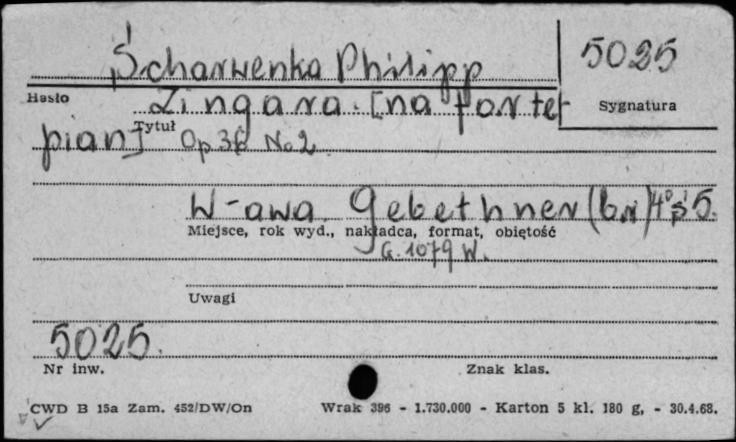 Scharwenka Philipp
5025
Hasło
Zingara. [na forte-
Sygnatura
pian]
Tytuł
Op 36 No 2
W-awa. Gebethner (b.r) 4° s 5.
Miejsce, rok wyd., nakładca, format, objętość
G. 1079 W.
Uwagi
5025.
Nr inw.
Znak klas.
CWD B 15a Zam. 452/DW/On
Wrak 396 - 1.730.000 - Karton 5 kl. 180 g, - 30.4.68.